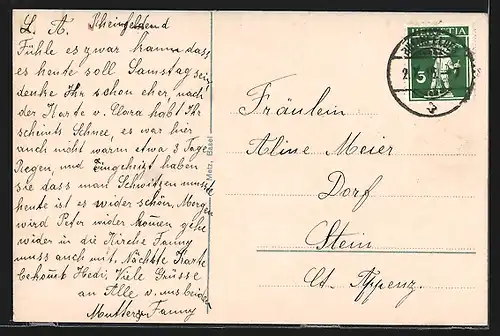 L. A. Rheinfelden d
Fühle es zwar kaum dass
es heute soll Samstag sein
denke Ihr schon eher, nach
der Karte v. Clara habt Ihr
scheints Schnee, es war hier
auch nicht warm etwa 3 Tage
Regen, und eingeheizt haben
sie dass man Schwitzen musste
heute ist es wider schön, Morgen
wird Peter wider können, gehe
wider in die Kirche Fanny
muss auch mit. Nächste Karte
bekomt Hedi, Viele Grüsse
an Alle v. uns beiden
Mutter & Fanny
Metz, Basel
HELVETIA
5
Fräulein
Aline Meier
Dorf
Stein
Ct. Appenz.